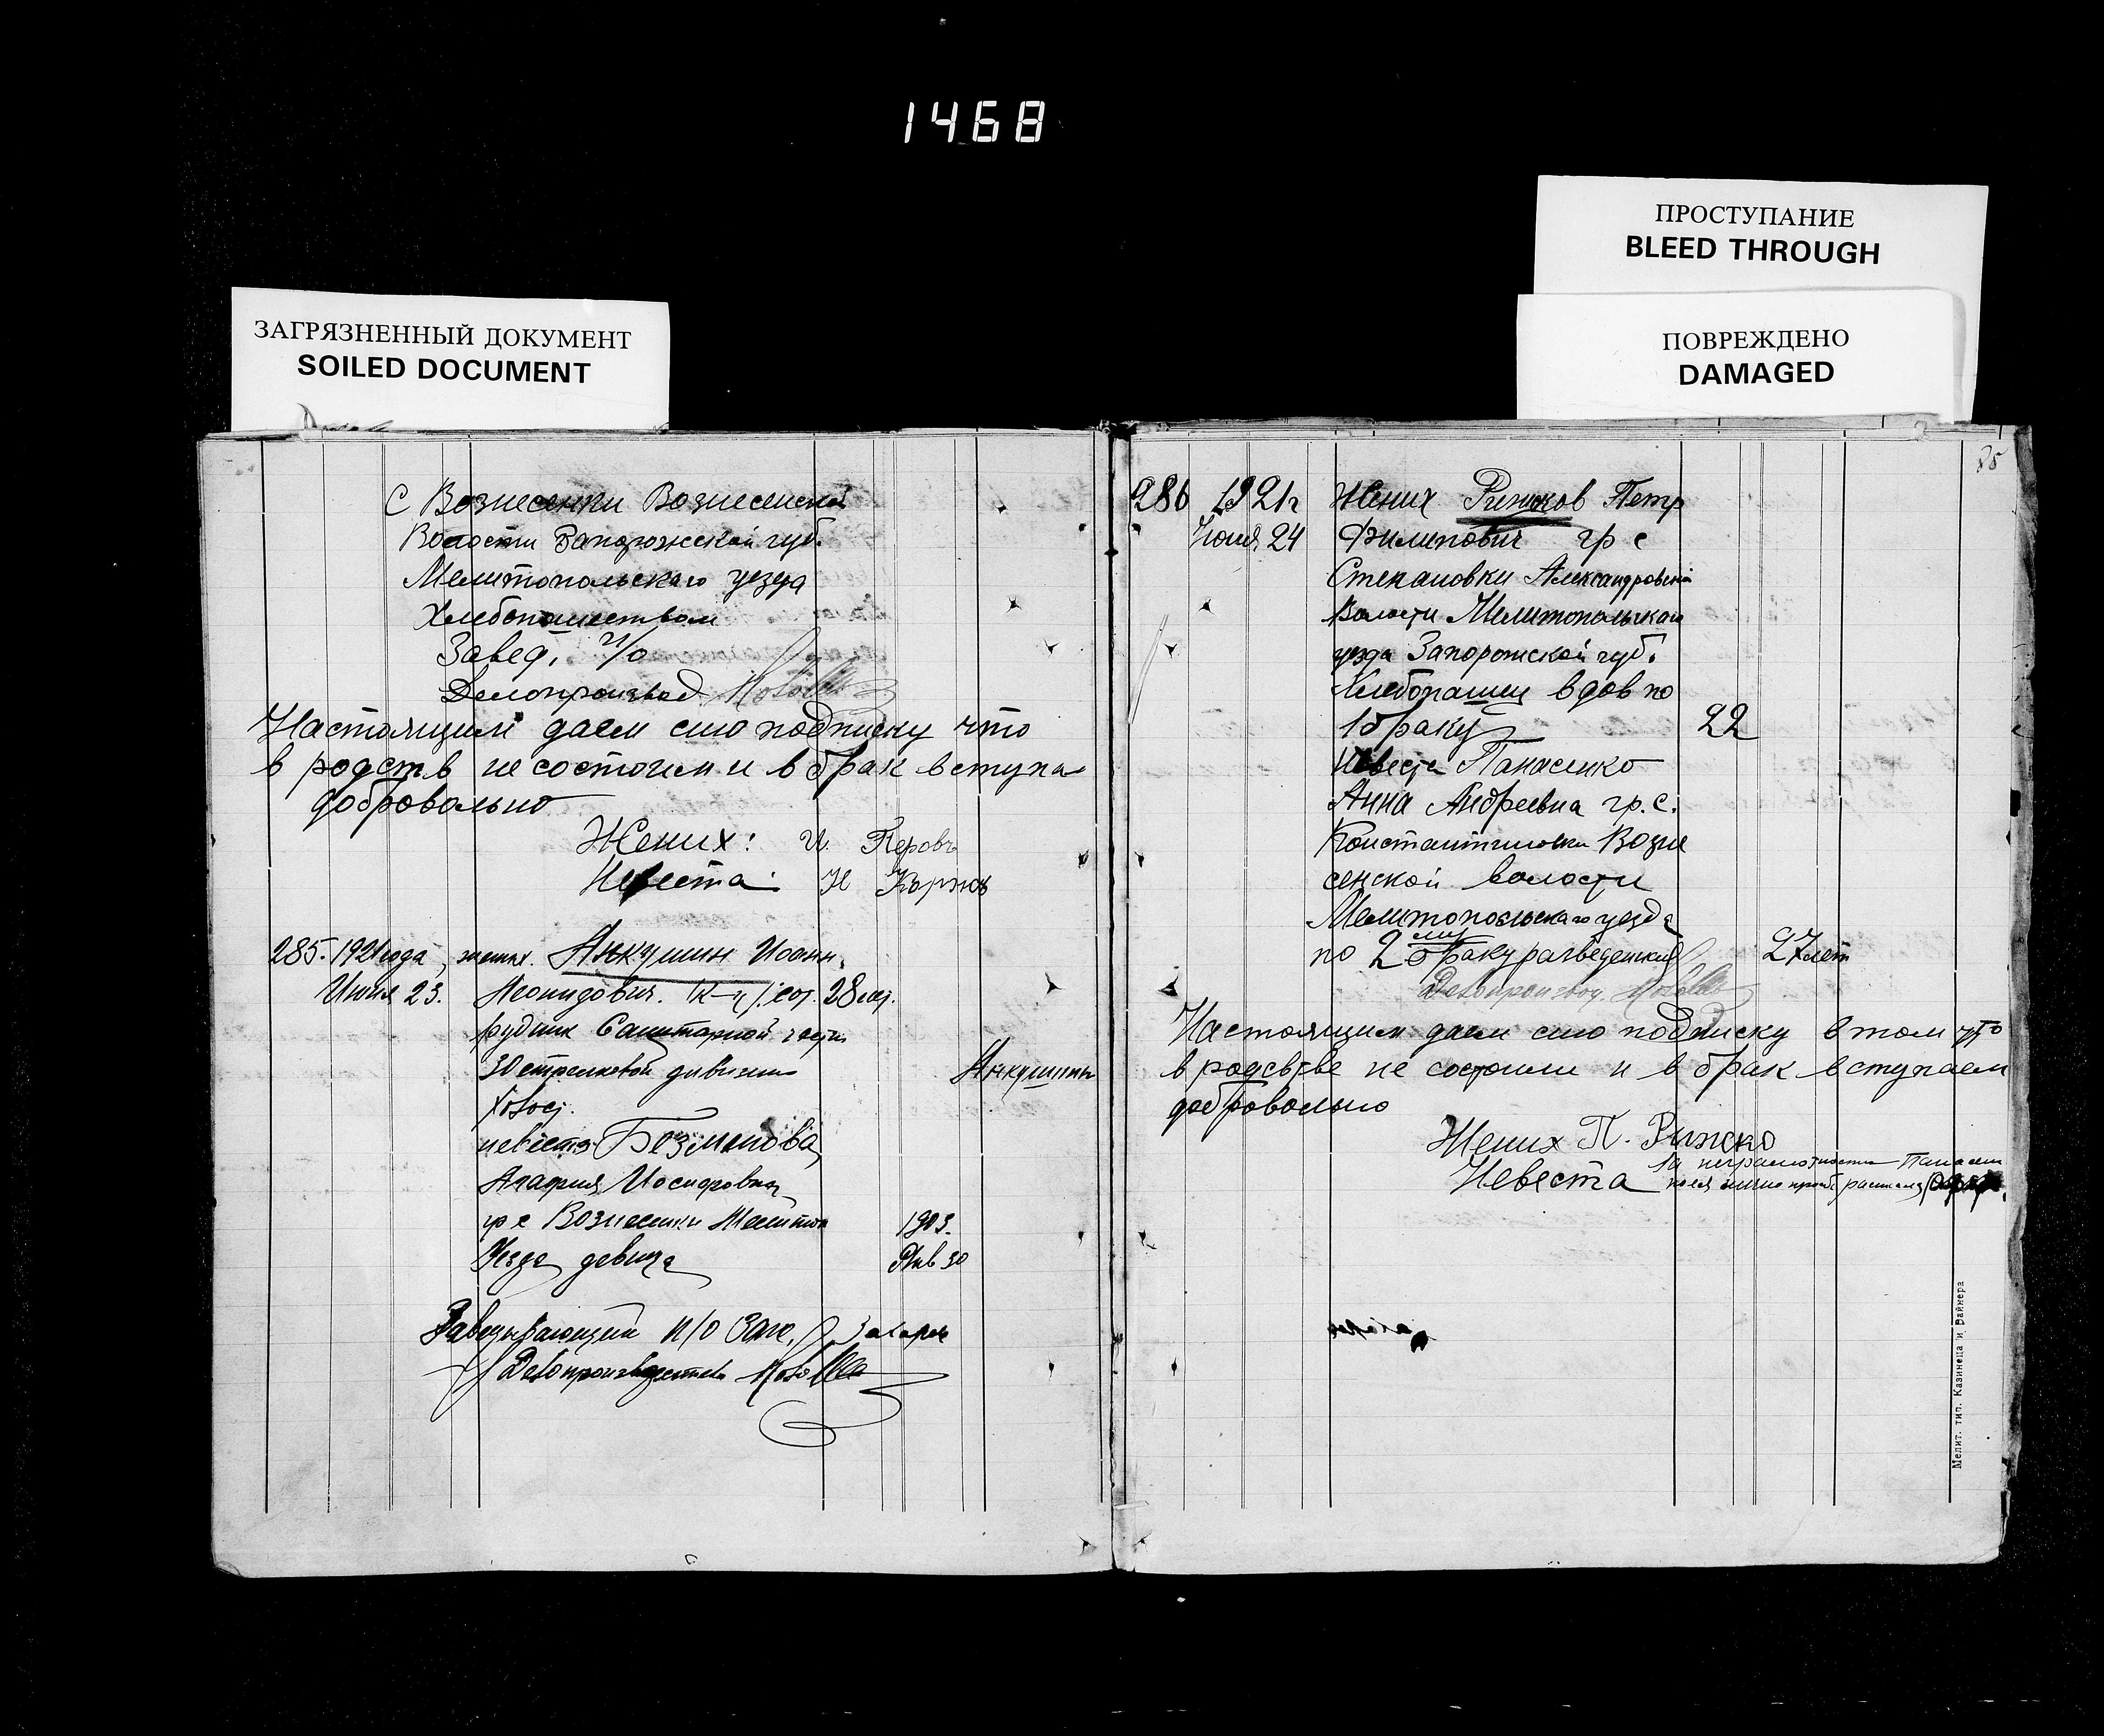 1468
ПРОСТУПАНИЕ
BLEED THROUGH
ПОВРЕЖДЕНО
DAMAGED
ЗАГРЯЗНЕННЫЙ ДОКУМЕНТ
SOILED DOCUMENT
С Вознесенки Вознесенской
Волости Запорожской губ.
Мелитопольскаго уезда
Хлебопашеством
Завед. ч/о
Делопроизвод
Настоящим даем сию подписку что
в родств не состоим и в брак вступа
добровольно
Жених: И. Керовъ
Невеста: Н
285. 1921 года, жених. Анкушин Иоанн
Июня 23. Леонидович. 28 лет.
Санитарной части
30 стрелковой дивизии
Анкушинъ
Холост.
невеста Безменова
Агафия Иосифовна
гр с Вознесенки Мелитоп
1903.
Уезда девица
Янв 30
Заведывающий п/о Заг.
Делопроизводитель
85
286 1921 г Жених Рижков Петр
Июня 24 Филипович гр с
Степановки Александровской
Волости Мелитопольскаго
уезда Запорожской губ.
Хлебопашец вдов по
1 браку 22
Невеста Панасенко
Анна Андреевна гр. с.
Константиновки Возне
сенской волости
Мелитопольскаго уезда
по 2 му браку разведенная 27 лет
Делопроизвод.
Настоящим даем сию подписку в том что
в родстве не состоим и в брак вступаем
добровольно
Жених П. Рижко
Невеста за неграмотностью Панасен
по ея лично прозьбе расписался
Мелит. тип. Казинеца и Вайнера